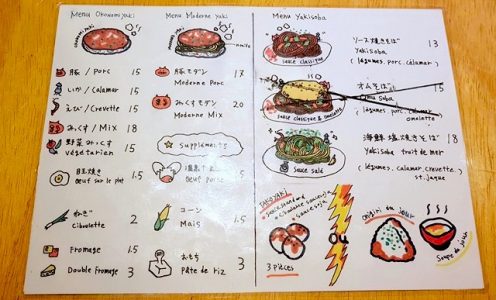 Menu Okonomiyaki
豚 / Porc 15
いか / Calamar 15
えび / Crevette 15
みっくす / Mix 18
野菜みっくす végétarien 15
目玉焼き Oeuf sur le plat 1.5
ねぎ Ciboulette 2
Fromage 1.5
Double fromage 3
Menu Moderne yaki
豚モダン Moderne Porc 17
みっくすモダン Moderne Mix 20
Suppléments
温泉玉子 Oeuf parfait 1.5
コーン Maïs 1.5
おもち Pâte de riz 3
Menu Yakisoba
sauce classique
ソース焼きそば 13
Yakisoba
(légumes, porc, calamar)
sauce classique
オムそば 15
soba
(légumes, porc, calamar
omelette)
sauce salé
海鮮塩焼きそば 18
Yakisoba fruit de mer
(légumes, calamar, crevette
st.jaque)
TAKOYAKI
3 pièces
OU
onigiri du jour
Soupe du jour